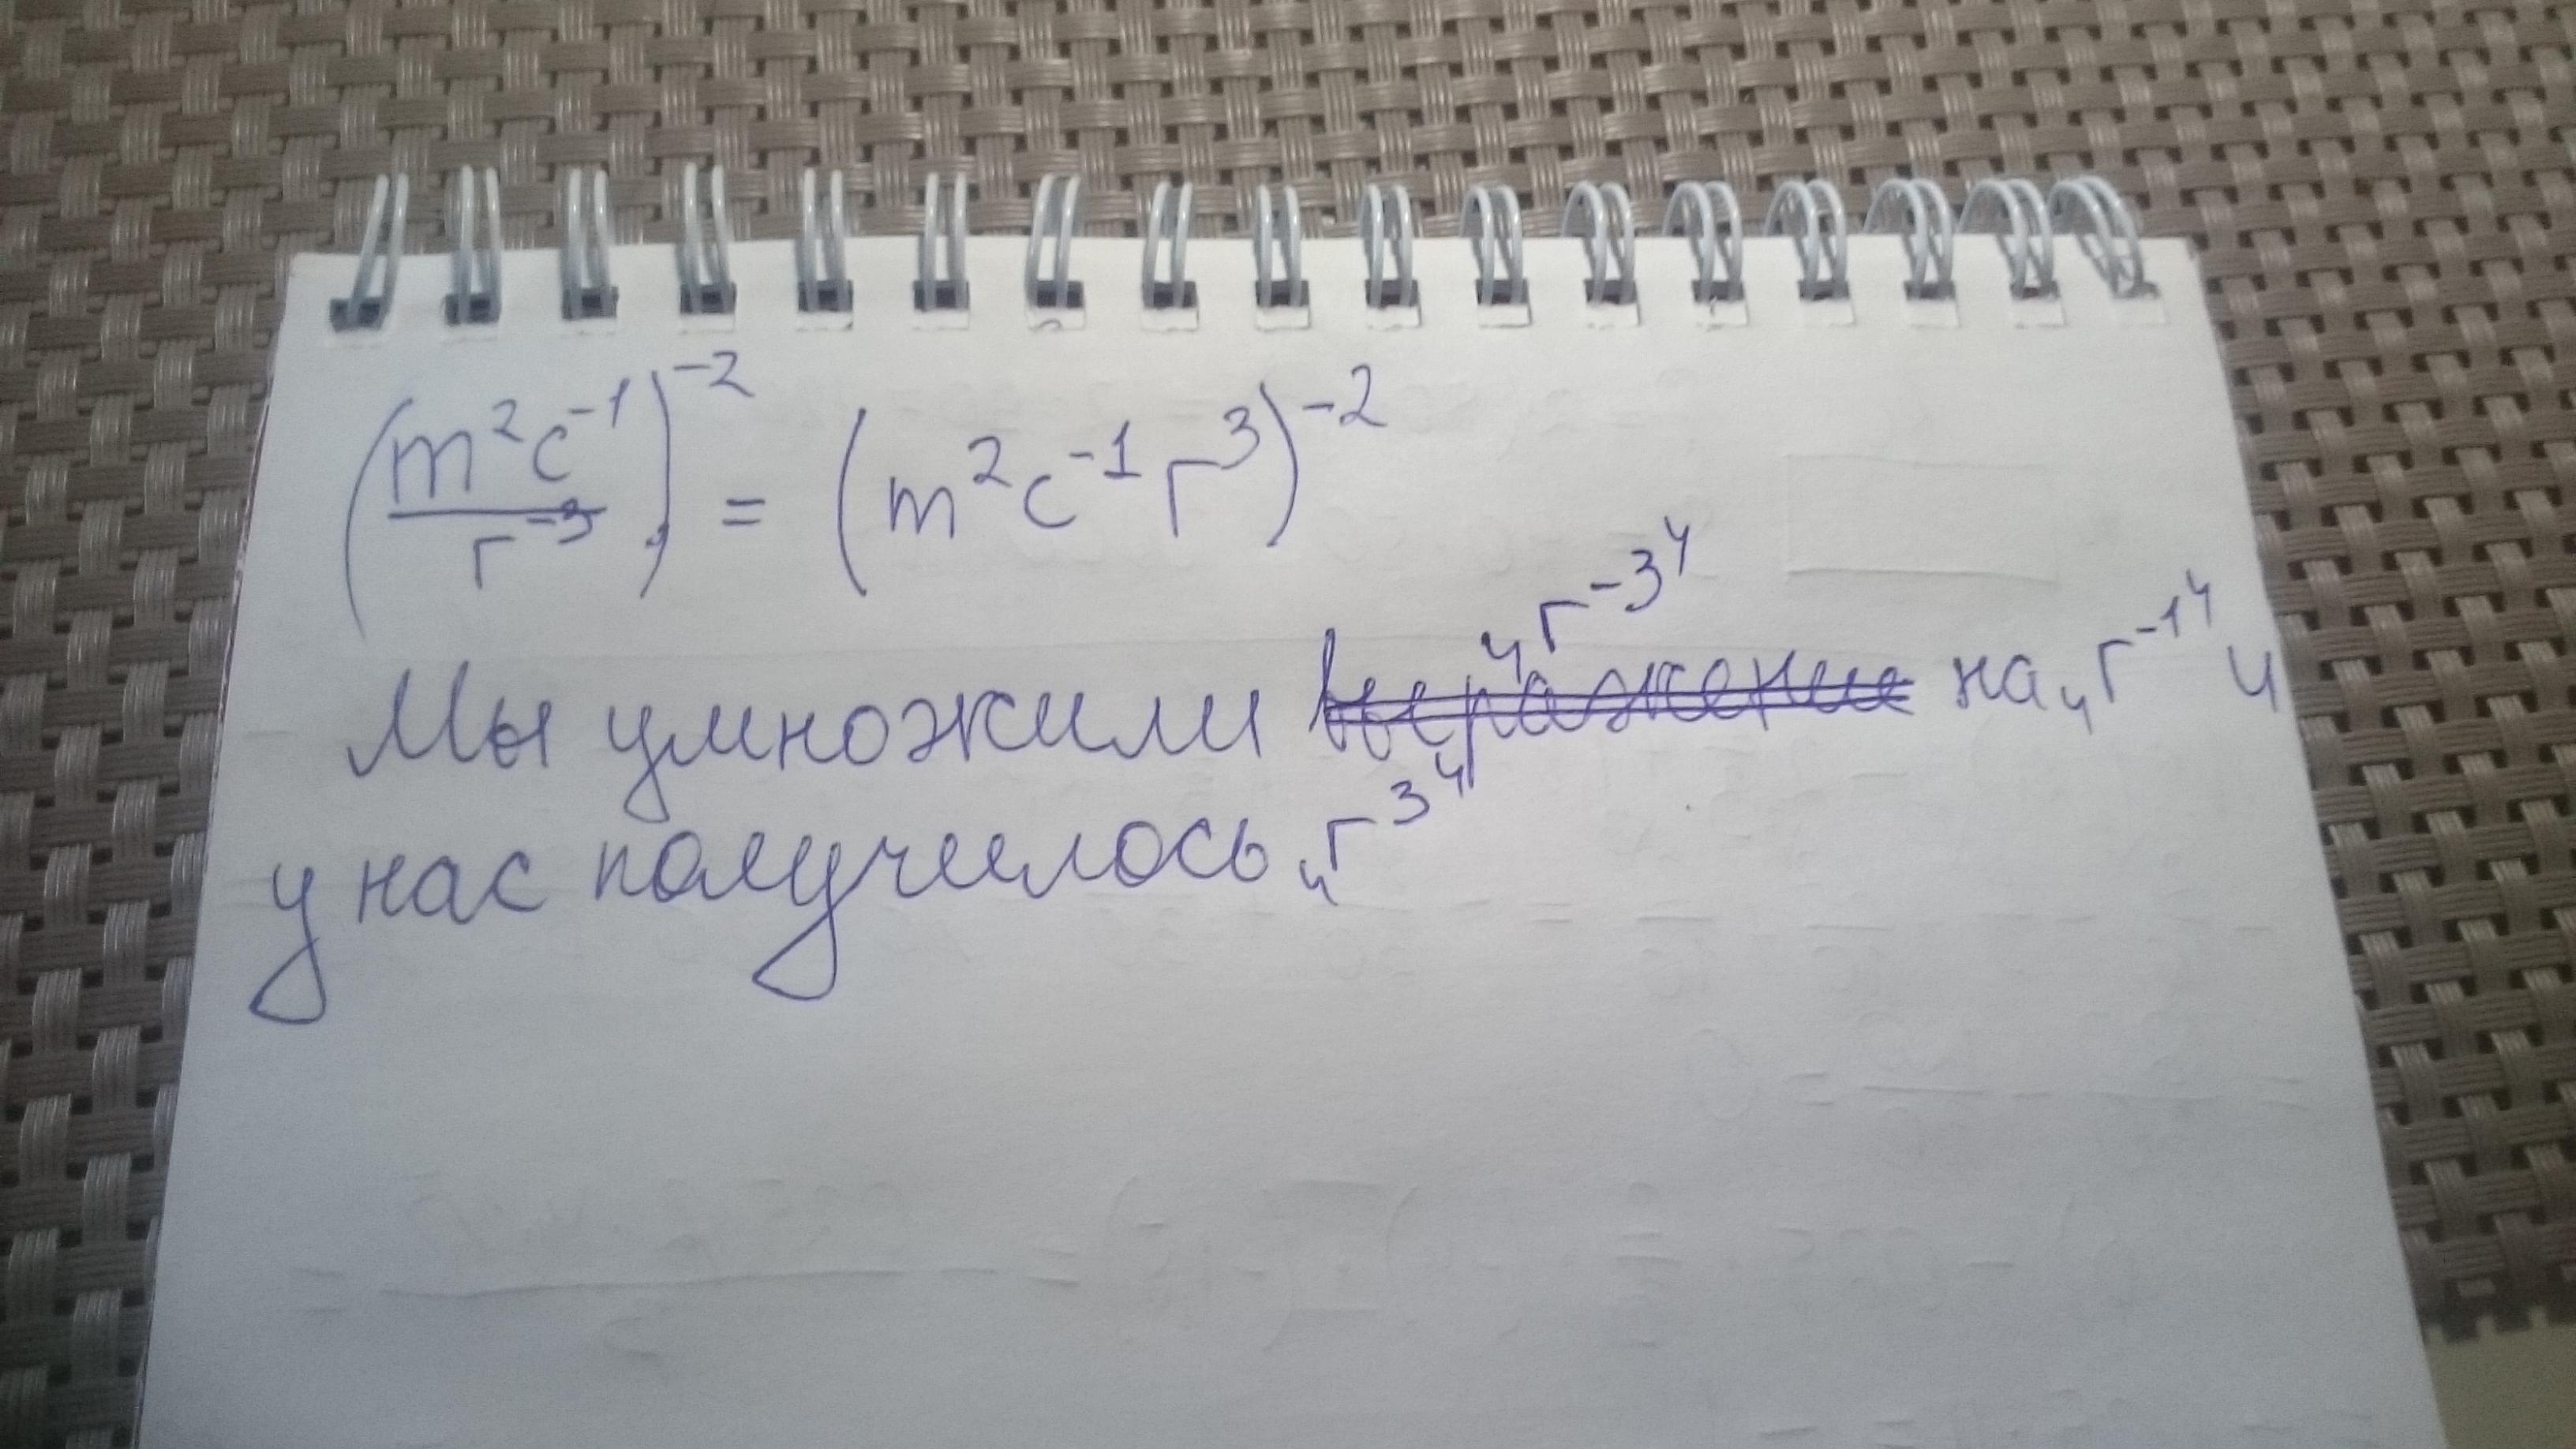 (m²c⁻¹/r⁻³)⁻² = (m²c⁻¹r³)⁻²
Мы умножили ~~выражение~~ "r⁻³" на "r⁻¹" и
у нас получилось "r³"